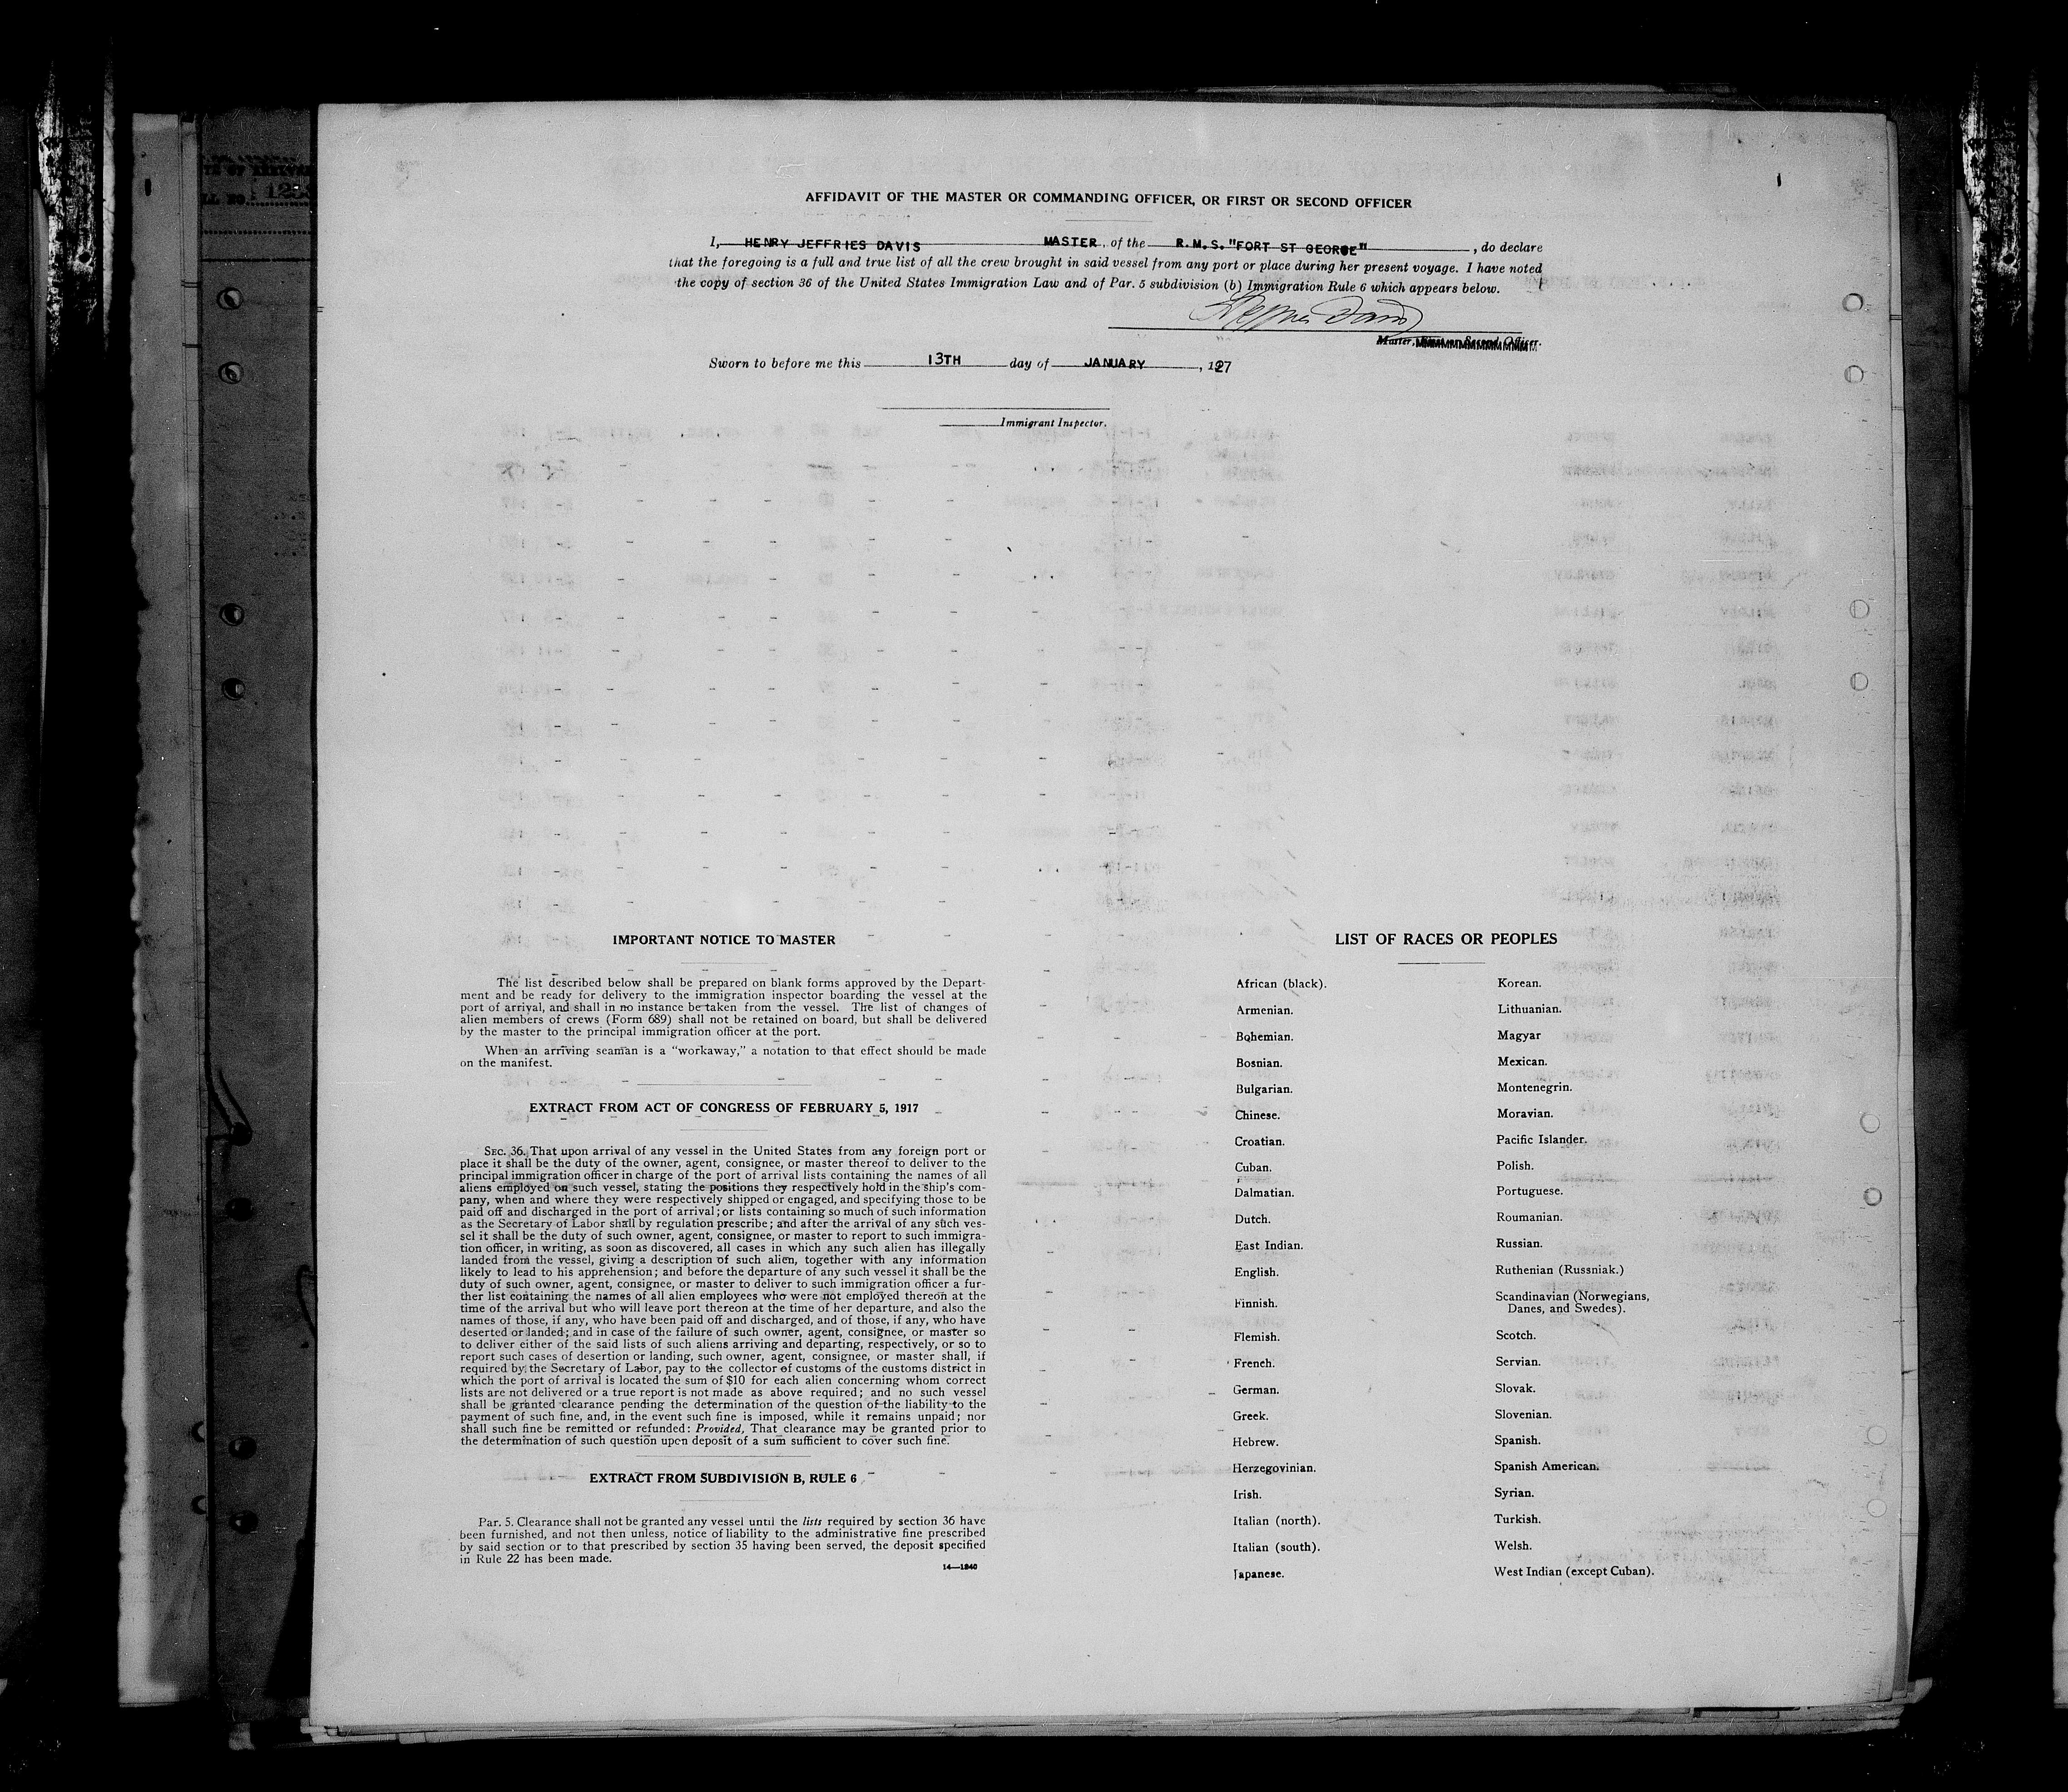 AFFIDAVIT OF THE MASTER OR COMMANDING OFFICER, OR FIRST OR SECOND OFFICER
I, HENRY JEFFRIES DAVIS MASTER, of the R.M.S. "FORT ST GEORGE", do declare
that the foregoing is a full and true list of all the crew brought in said vessel from any port or place during her present voyage. I have noted
the copy of section 36 of the United States Immigration Law and of Par. 5 subdivision (b) Immigration Rule 6 which appears below.
Master, First or Second Officer.
Sworn to before me this 13TH day of JANUARY, 1927
Immigrant Inspector.
IMPORTANT NOTICE TO MASTER
The list described below shall be prepared on blank forms approved by the Depart-
ment and be ready for delivery to the immigration inspector boarding the vessel at the
port of arrival, and shall in no instance be taken from the vessel. The list of changes of
alien members of crews (Form 689) shall not be retained on board, but shall be delivered
by the master to the principal immigration officer at the port.
When an arriving seaman is a "workaway," a notation to that effect should be made
on the manifest.
EXTRACT FROM ACT OF CONGRESS OF FEBRUARY 5, 1917
SEC. 36. That upon arrival of any vessel in the United States from any foreign port or
place it shall be the duty of the owner, agent, consignee, or master thereof to deliver to the
principal immigration officer in charge of the port of arrival lists containing the names of all
aliens employed on such vessel, stating the positions they respectively hold in the ship's com-
pany, when and where they were respectively shipped or engaged, and specifying those to be
paid off and discharged in the port of arrival; or lists containing so much of such information
as the Secretary of Labor shall by regulation prescribe; and after the arrival of any such ves-
sel it shall be the duty of such owner, agent, consignee, or master to report to such immigra-
tion officer, in writing, as soon as discovered, all cases in which any such alien has illegally
landed from the vessel, giving a description of such alien, together with any information
likely to lead to his apprehension; and before the departure of any such vessel it shall be the
duty of such owner, agent, consignee, or master to deliver to such immigration officer a fur-
ther list containing the names of all alien employees who were not employed thereon at the
time of the arrival but who will leave port thereon at the time of her departure, and also the
names of those, if any, who have been paid off and discharged, and of those, if any, who have
deserted or landed; and in case of the failure of such owner, agent, consignee, or master so
to deliver either of the said lists of such aliens arriving and departing, respectively, or so to
report such cases of desertion or landing, such owner, agent, consignee, or master shall, if
required by the Secretary of Labor, pay to the collector of customs of the customs district in
which the port of arrival is located the sum of $10 for each alien concerning whom correct
lists are not delivered or a true report is not made as above required; and no such vessel
shall be granted clearance pending the determination of the question of the liability to the
payment of such fine, and, in the event such fine is imposed, while it remains unpaid; nor
shall such fine be remitted or refunded: Provided, That clearance may be granted prior to
the determination of such question upon deposit of a sum sufficient to cover such fine.
EXTRACT FROM SUBDIVISION B, RULE 6
Par. 5. Clearance shall not be granted any vessel until the lists required by section 36 have
been furnished, and not then unless, notice of liability to the administrative fine prescribed
by said section or to that prescribed by section 35 having been served, the deposit specified
in Rule 22 has been made.
14—1240
LIST OF RACES OR PEOPLES
African (black).
Armenian.
Bohemian.
Bosnian.
Bulgarian.
Chinese.
Croatian.
Cuban.
Dalmatian.
Dutch.
East Indian.
English.
Finnish.
Flemish.
French.
German.
Greek.
Hebrew.
Herzegovinian.
Irish.
Italian (north).
Italian (south).
Japanese.
Korean.
Lithuanian.
Magyar
Mexican.
Montenegrin.
Moravian.
Pacific Islander.
Polish.
Portuguese.
Roumanian.
Russian.
Ruthenian (Russniak.)
Scandinavian (Norwegians,
Danes, and Swedes).
Scotch.
Servian.
Slovak.
Slovenian.
Spanish.
Spanish American.
Syrian.
Turkish.
Welsh.
West Indian (except Cuban).